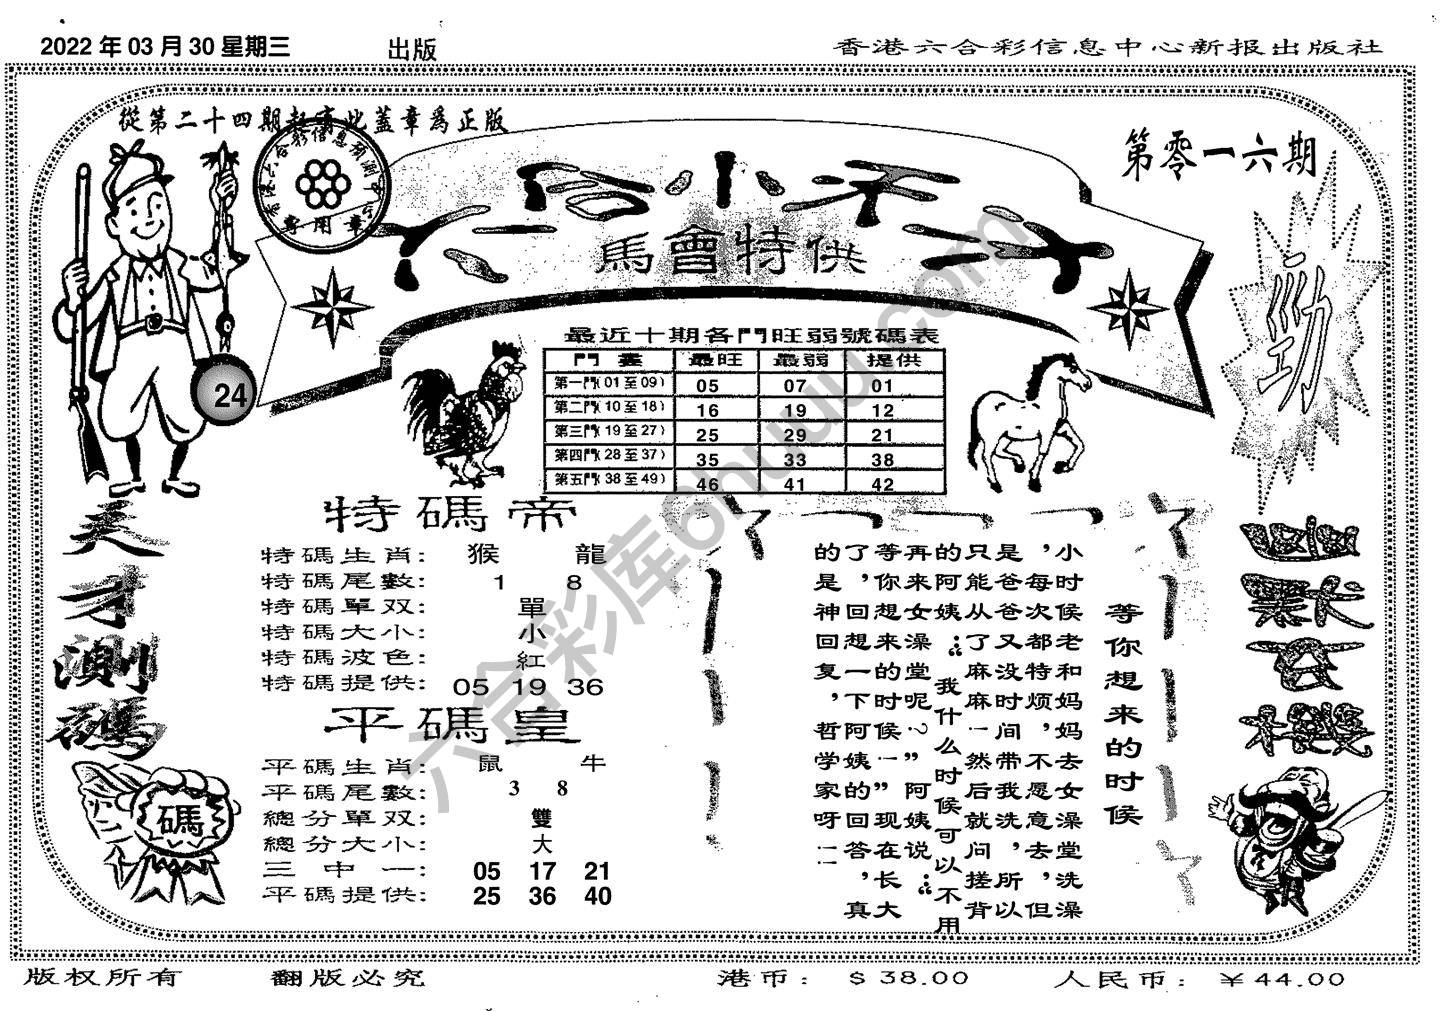 2022 年 03 月 30 星期三
出版
香港六合彩信息中心新报出版社
從第二十四期起有此蓋章爲正版
第零一六期
專用章
馬會特供
勁
24
最近十期各門旺弱號碼表
門 最旺 最弱 提供
第一門(01至09) 05 07 01
第二門(10至18) 16 19 12
第三門(19至27) 25 29 21
第四門(28至37) 35 33 38
第五門(38至49) 46 41 42
天才測碼
特碼帝
特碼生肖: 猴 龍
特碼尾數: 1 8
特碼單双: 單
特碼大小: 小
特碼波色: 紅
特碼提供: 05 19 36
平碼皇
平碼生肖: 鼠 牛
平碼尾數: 3 8
總分單双: 雙
總分大小: 大
三中一: 05 17 21
平碼提供: 25 36 40
碼
等你想来的时候
小时候老和妈妈去女澡堂洗澡
,每次都特烦,不愿意去,但
是爸爸又没时间带我洗,所以
只能从了麻麻一然后就问搓背
的阿姨:“我什么时候可以不用
再来女澡堂呢?”阿姨说:“
等你想来的时候一”现在长大
了,回想一下阿姨的回答,真
的是神回复,哲学家呀——
六合彩库6huuu.com
版权所有
翻版必究
港币: $ 38.00
人民币: ¥ 44.00